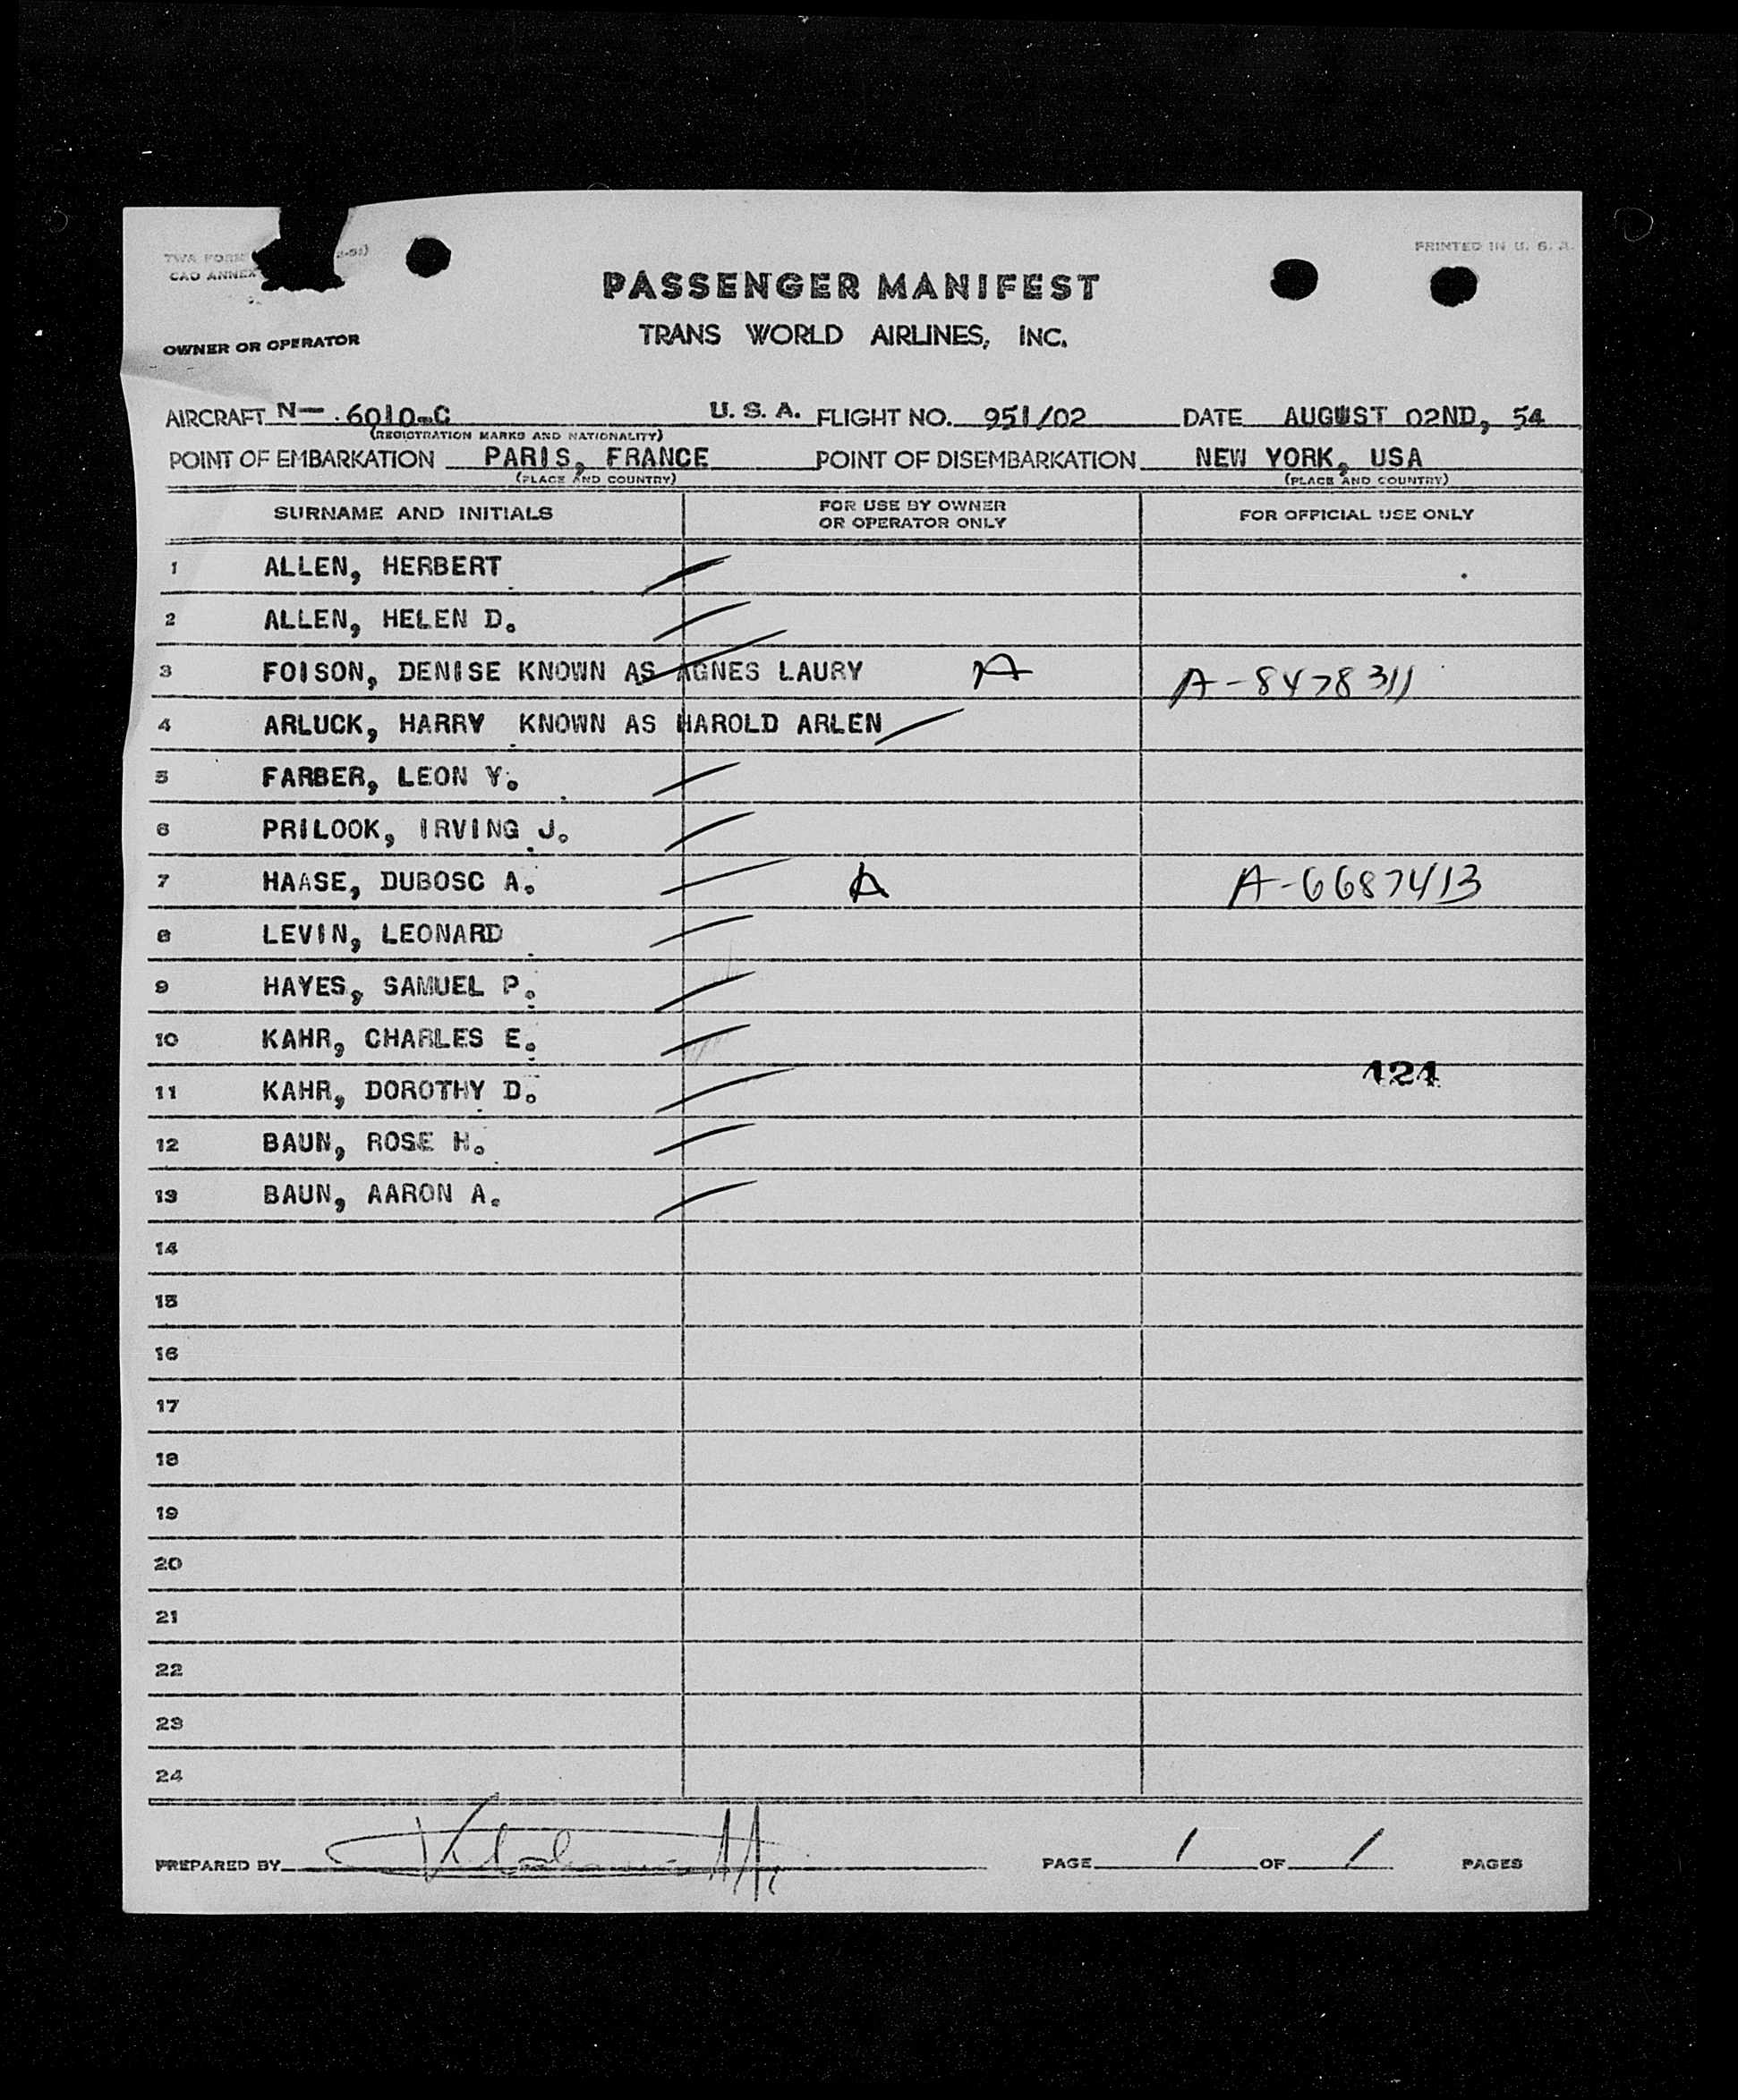 TWA FORM
CAO ANNEX
PRINTED IN U. S. A.
PASSENGER MANIFEST
TRANS WORLD AIRLINES, INC.
OWNER OR OPERATOR
AIRCRAFT N- 6010-C U. S. A. FLIGHT NO. 951/02 DATE AUGUST 02ND, 54
(REGISTRATION MARKS AND NATIONALITY)
POINT OF EMBARKATION PARIS, FRANCE POINT OF DISEMBARKATION NEW YORK, USA
(PLACE AND COUNTRY) (PLACE AND COUNTRY)
SURNAME AND INITIALS FOR USE BY OWNER OR OPERATOR ONLY FOR OFFICIAL USE ONLY
1 ALLEN, HERBERT
2 ALLEN, HELEN D.
3 FOISON, DENISE KNOWN AS AGNES LAURY A A-8478311
4 ARLUCK, HARRY KNOWN AS HAROLD ARLEN
5 FARBER, LEON Y.
6 PRILOOK, IRVING J.
7 HAASE, DUBOSC A. A A-6687413
8 LEVIN, LEONARD
9 HAYES, SAMUEL P.
10 KAHR, CHARLES E.
424
11 KAHR, DOROTHY D.
12 BAUN, ROSE H.
13 BAUN, AARON A.
14
15
16
17
18
19
20
21
22
23
24
PREPARED BY PAGE 1 OF 1 PAGES